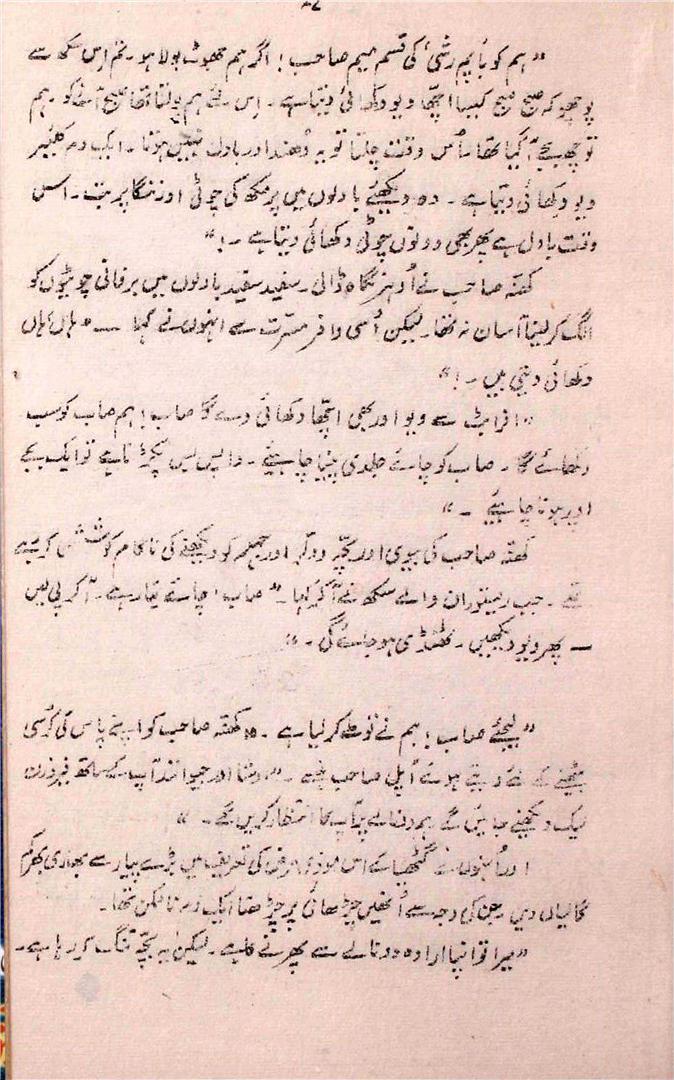 ۴۷
”ہم کو بائیم رشی کی قسم میم صاحب! اگر ہم جھوٹ بولا ہو۔ تم اس سکھ سے
پوچھو کہ صبح صبح کیسا اچھا ویو دکھائی دیتا ہے۔ اس لئے ہم بولتا تھا صبح آنے کو۔ ہم
تو چھ بجے آ گیا تھا۔ اُس وقت چلتا تو یہ دُھند اور بادل نہیں ہوتا۔ ایک دم کلیئر
ویو دکھائی دیتا ہے۔ وہ دیکھیئے بادلوں میں پر مکھ کی چوٹی اور ننگا پربت۔ اس
وقت بادل ہے پھر بھی دونوں چوٹی دکھائی دیتا ہے۔!“
کھنّہ صاحب نے اُدہر نگاہ ڈالی۔ سفید سفید بادلوں میں برفانی چوٹیوں کو
الگ کر لینا آسان نہ تھا۔ لیکن اُسی وافر مسرّت سے انہوں نے کہا — ”ہاں ہاں
دکھائی دیتی ہیں۔!“
”افرابٹ سے ویو اور بھی اچھا دکھائی دے گا صاب! ہم صاب کو سب
دکھائے گا۔ صاب کو چائے جلدی پینا چاہیئے۔ واپس بس پکڑنا ہے تو ایک بجے
اوپر ہونا چاہیئے۔“
کھنّہ صاحب کی بیوی اور بچّہ وولر اور جہلم کو دیکھنے کی ناکام کوشش کر رہے
تھے۔ جب ریستوران والے سکھ نے آ کر کہا۔ ”صاب! چائے تیار ہے۔ آ کر پی لیں
— پھر ویو دیکھیں۔ ٹھنڈی ہو جائے گی۔“
”لیجئے صاب! ہم نے نوٹ کر لیا ہے۔“ کھنّہ صاحب کو اپنے پاس کی کُرسی
بیٹھنے کے لئے دیتے ہوئے اُپلی صاحب بولے۔ ”دنتا اور جیوانند آپ کے ساتھ فیروزن
لیک دیکھنے جائیں گے ہم نالے پر آپ کا انتظار کریں گے۔“
اور اُنہوں نے گٹھیا کے اس موذی مرض کی تعریف میں بڑے پیار سے بھاری بھرکم
گالیاں دیں جن کی وجہ سے اُنھیں چڑھائی پر چڑھنا ایک دم ناممکن تھا۔
”میرا تو اپنا ارادہ دو نالے سے پھرنے کا ہے۔ لیکن یہ بچّہ تنگ کر رہا ہے۔